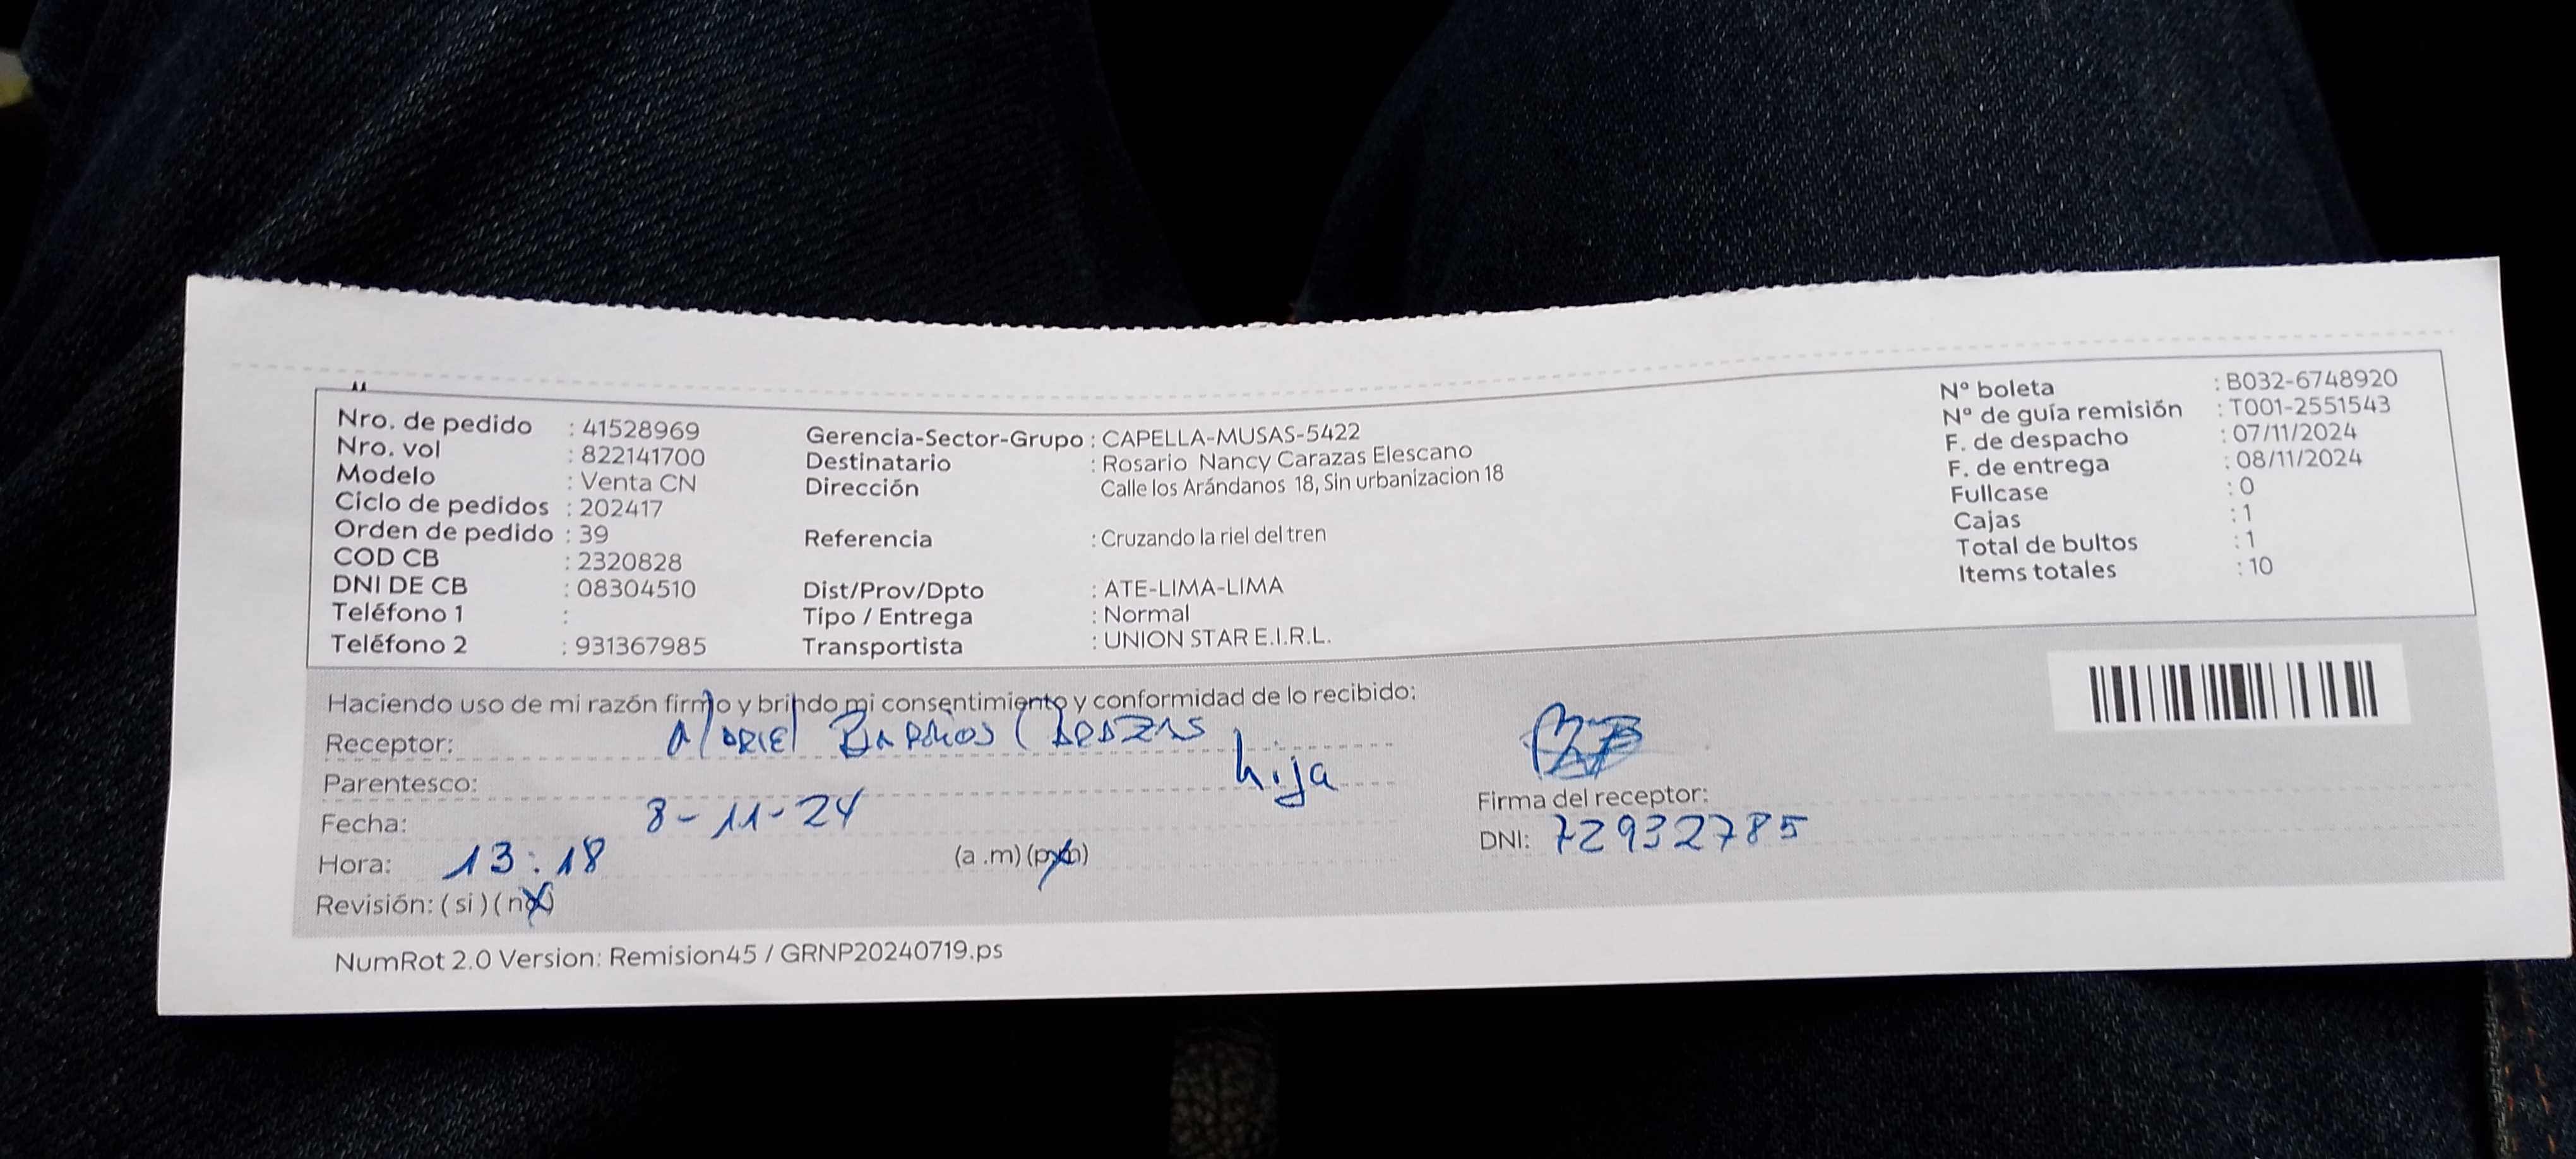 Nro. de pedido : 41528969
Nro. vol : 822141700
Modelo : Venta CN
Ciclo de pedidos : 202417
Orden de pedido : 39
COD CB : 2320828
DNI DE CB : 08304510
Teléfono 1 :
Teléfono 2 : 931367985
Gerencia-Sector-Grupo : CAPELLA-MUSAS-5422
Destinatario : Rosario Nancy Carazas Elescano
Dirección Calle los Arándanos 18, Sin urbanizacion 18
Referencia : Cruzando la riel del tren
Dist/Prov/Dpto : ATE-LIMA-LIMA
Tipo / Entrega : Normal
Transportista : UNION STAR E.I.R.L.
Nº boleta : B032-6748920
Nº de guía remisión : T001-2551543
F. de despacho : 07/11/2024
F. de entrega : 08/11/2024
Fullcase : 0
Cajas : 1
Total de bultos : 1
Items totales : 10
Haciendo uso de mi razón firmo y brindo mi consentimiento y conformidad de lo recibido:
Receptor: Barrios
Parentesco: hija
Fecha: 8-11-24
Hora: 13:18 (a .m) (p.m)
Revisión: ( si ) ( no )
Firma del receptor:
DNI: 72932785
NumRot 2.0 Version: Remision45 / GRNP20240719.ps